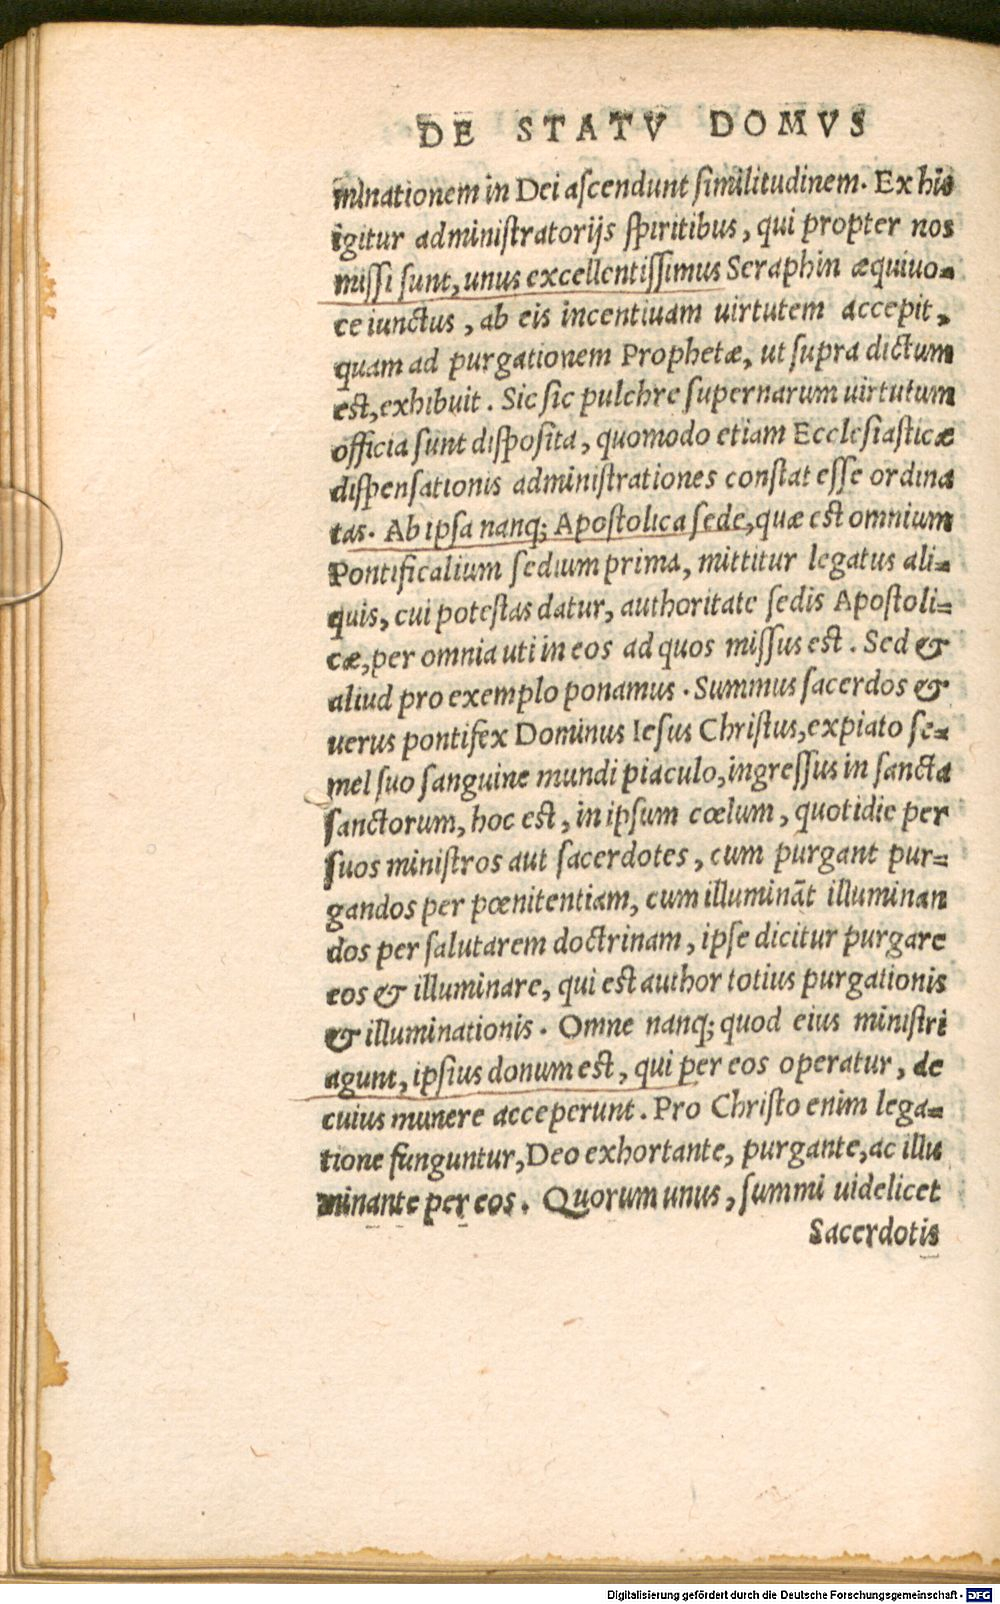 DE STATV DOMVS
minationem in Dei aſcendunt ſimilitudinem. Ex his
igitur adminiſtratorijs ſpiritibus, qui propter nos
miſſi ſunt, unus excellentiſſimus Seraphin æquiuo-
ce iunctus, ab eis incentiuam uirtutem accepit,
quam ad purgationem Prophetæ, ut ſupra dictum
eſt, exhibuit. Sic ſic pulchre ſupernarum uirtutum
officia ſunt diſpoſita, quomodo etiam Eccleſiaſticæ
diſpenſationis adminiſtrationes conſtat eſſe ordina
tas. Ab ipſa nanq; Apoſtolica ſede, quæ eſt omnium
Pontificalium ſedium prima, mittitur legatus ali-
quis, cui poteſtas datur, authoritate ſedis Apoſtoli-
cæ, per omnia uti in eos ad quos miſſus eſt. Sed &
aliud pro exemplo ponamus. Summus ſacerdos &
uerus pontifex Dominus Ieſus Chriſtus, expiato ſe-
mel ſuo ſanguine mundi piaculo, ingreſſus in ſancta
ſanctorum, hoc eſt, in ipſum cœlum, quotidie per
ſuos miniſtros aut ſacerdotes, cum purgant pur-
gandos per pœnitentiam, cum illuminãt illuminan
dos per ſalutarem doctrinam, ipſe dicitur purgare
eos & illuminare, qui eſt author totius purgationis
& illuminationis. Omne nanq; quod eius miniſtri
agunt, ipſius donum eſt, qui per eos operatur, de
cuius munere acceperunt. Pro Chriſto enim lega-
tione funguntur, Deo exhortante, purgante, ac illu
minante per eos. Quorum unus, ſummi uidelicet
Sacerdotis
Digitalisierung gefördert durch die Deutsche Forschungsgemeinschaft - DFG